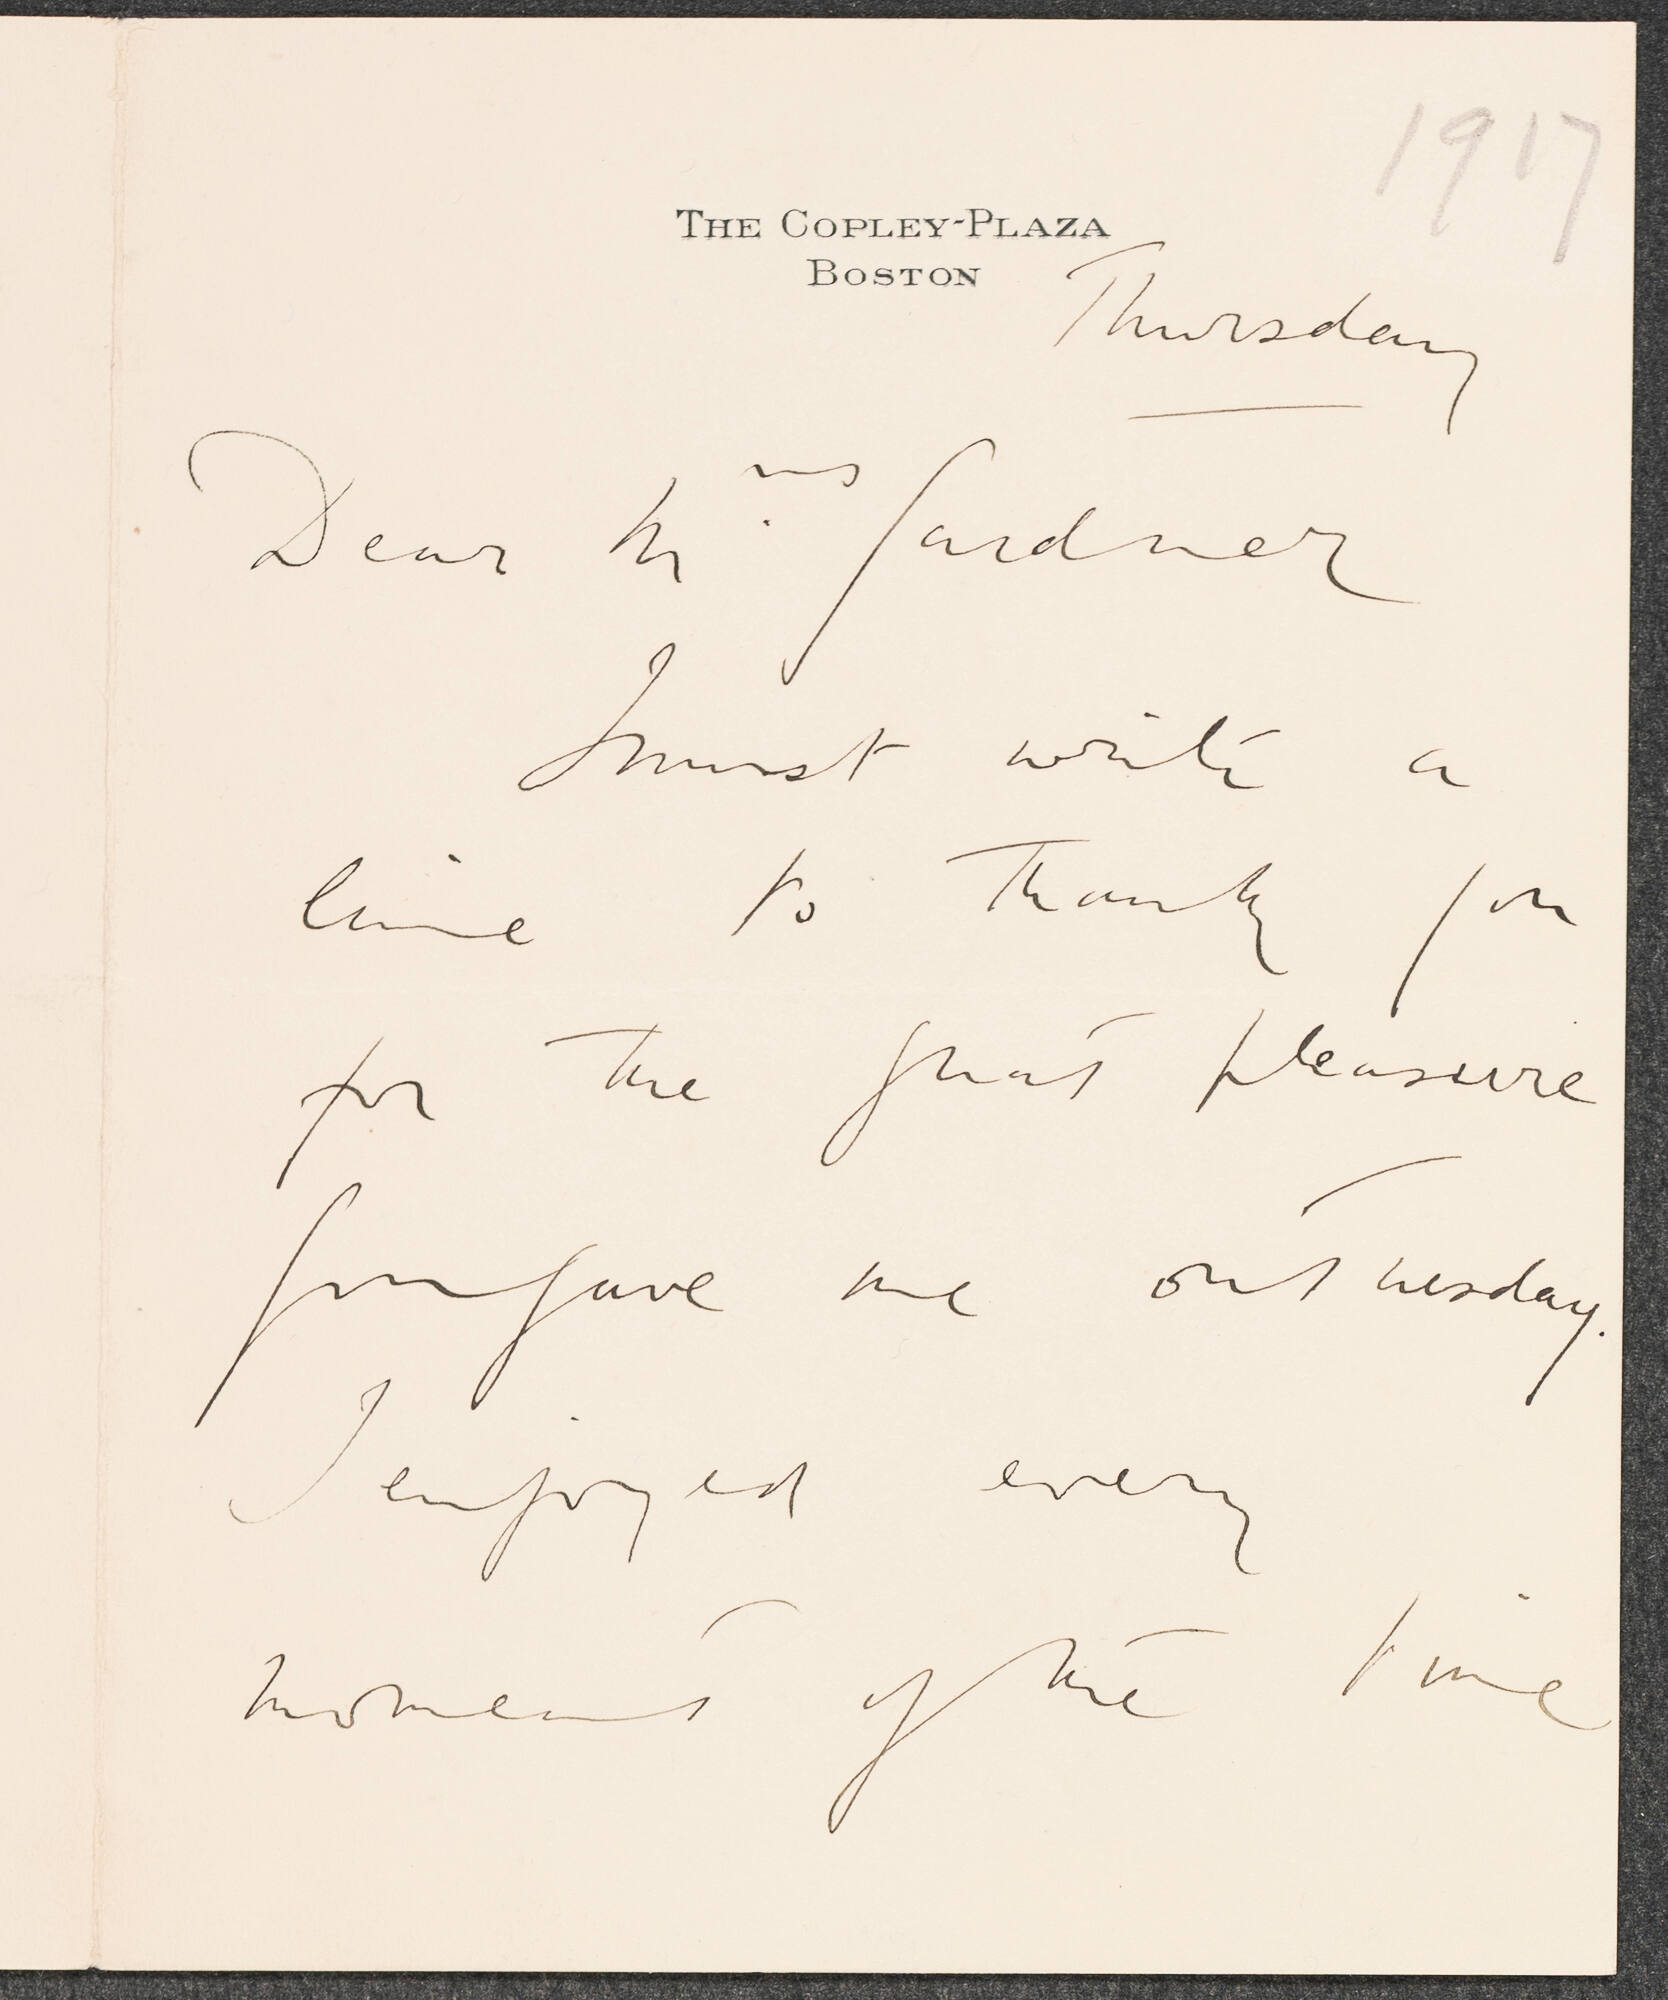 1917
THE COPLEY-PLAZA
BOSTON
Thursday
Dear Mrs. Gardner
I must write a
line to thank you
for the great pleasure
you gave me on Tuesday.
I enjoyed every
moment of the time